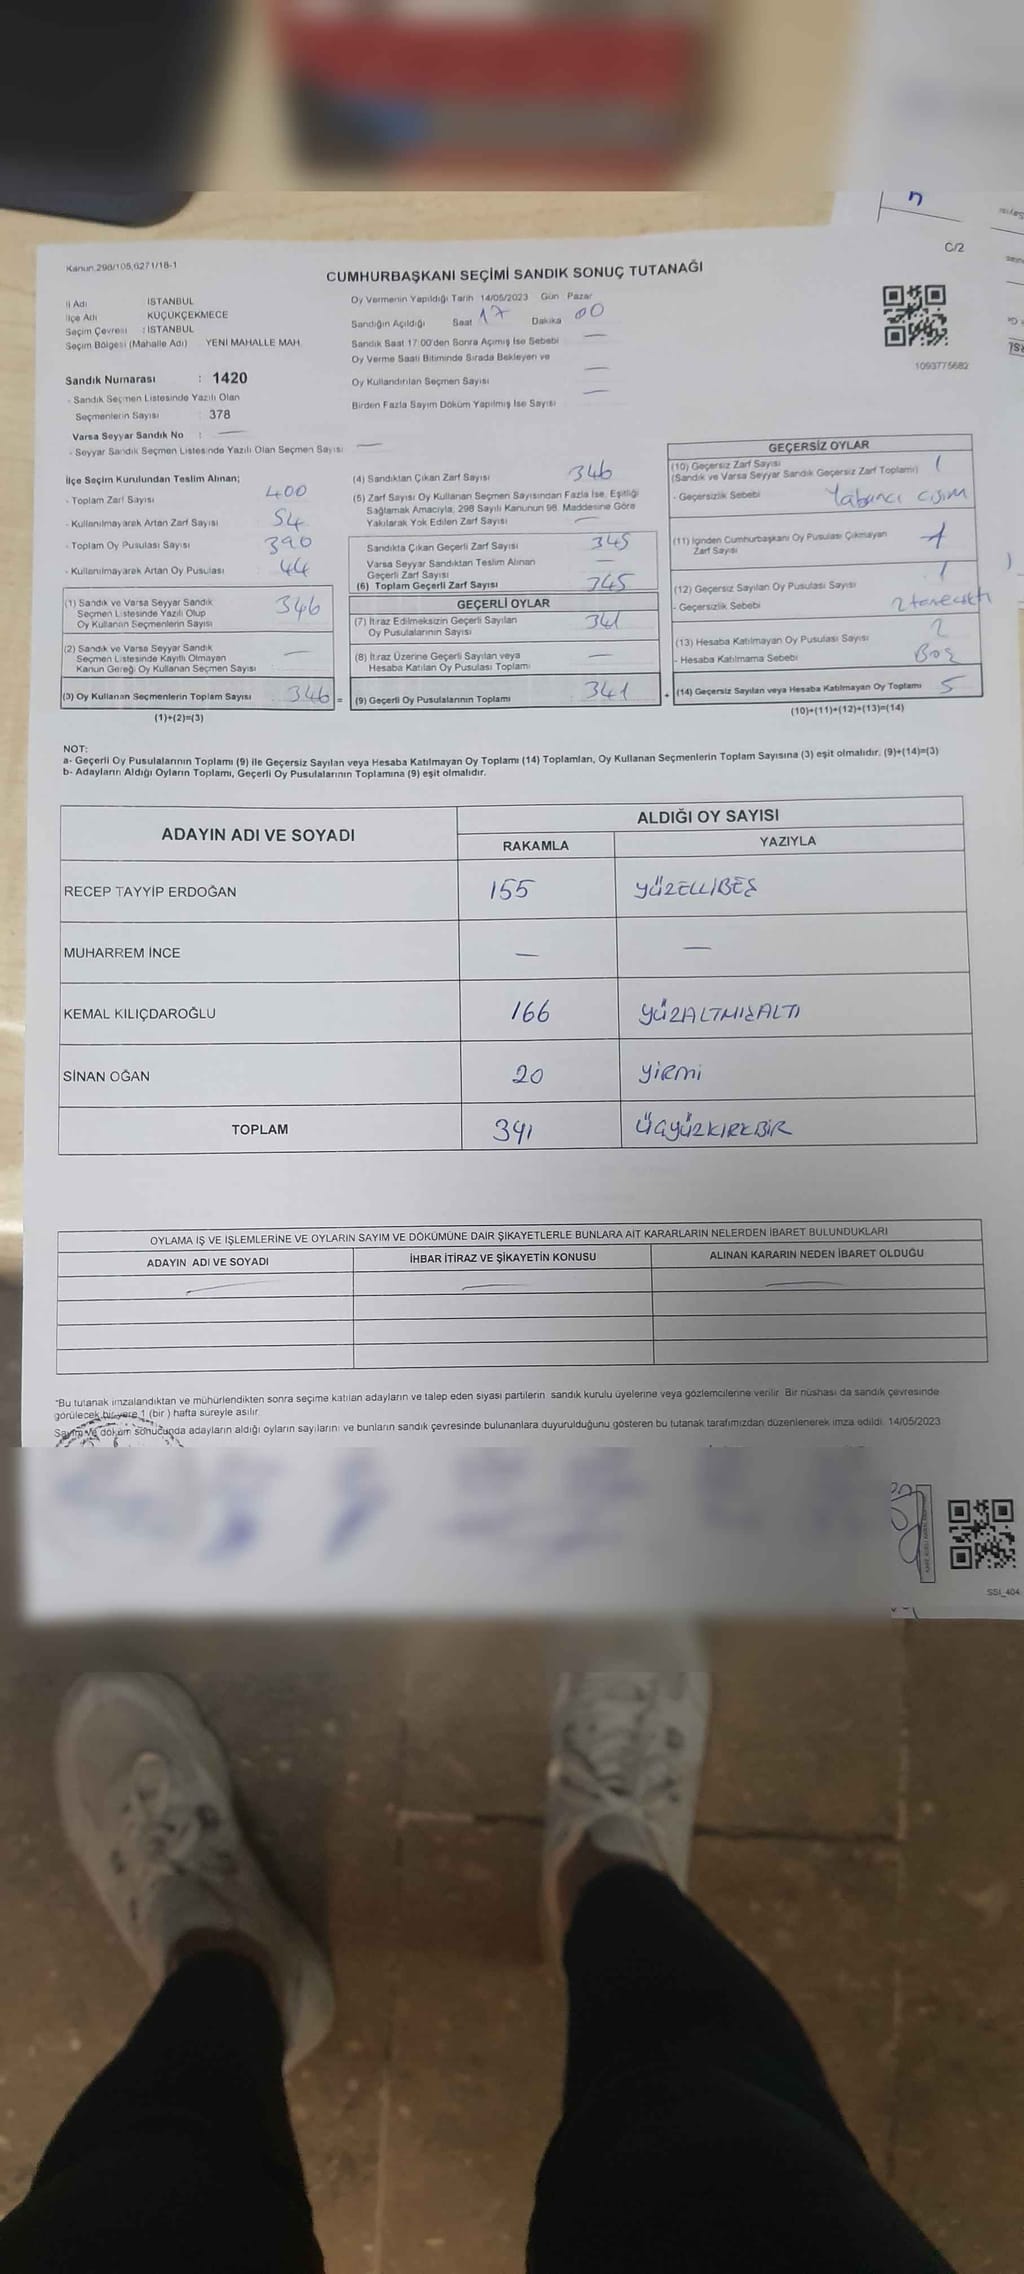 n
C/2
Kanun.298/105,6271/18-1
CUMHURBAŞKANI SEÇİMİ SANDIK SONUÇ TUTANAĞI
İl Adı : İSTANBUL
İlçe Adı : KÜÇÜKÇEKMECE
Seçim Çevresi : İSTANBUL
Seçim Bölgesi (Mahalle Adı) YENİ MAHALLE MAH.
Sandık Numarası : 1420
- Sandık Seçmen Listesinde Yazılı Olan
Seçmenlerin Sayısı 378
Varsa Seyyar Sandık No : —
- Seyyar Sandık Seçmen Listesinde Yazılı Olan Seçmen Sayısı —
Oy Vermenin Yapıldığı Tarih 14/05/2023 Gün Pazar
Sandığın Açıldığı Saat 17 Dakika 00
Sandık Saat 17:00'den Sonra Açımış İse Sebebi —
Oy Verme Saati Bitiminde Sırada Bekleyen ve
Oy Kullandırılan Seçmen Sayısı —
Birden Fazla Sayım Döküm Yapılmış İse Sayısı —
1093775682
İlçe Seçim Kurulundan Teslim Alınan;
- Toplam Zarf Sayısı 400
- Kullanılmayarak Artan Zarf Sayısı 54
- Toplam Oy Pusulası Sayısı 390
- Kullanılmayarak Artan Oy Pusulası : 44
(1) Sandık ve Varsa Seyyar Sandık
Seçmen Listesinde Yazılı Olup
Oy Kullanan Seçmenlerin Sayısı 346
(2) Sandık ve Varsa Seyyar Sandık
Seçmen Listesinde Kayıtlı Olmayan
Kanun Gereği Oy Kullanan Seçmen Sayısı —
(3) Oy Kullanan Seçmenlerin Toplam Sayısı 346 =
(1)+(2)=(3)
(4) Sandıktan Çıkan Zarf Sayısı 346
(5) Zarf Sayısı Oy Kullanan Seçmen Sayısından Fazla İse, Eşitliği
Sağlamak Amacıyla, 298 Sayılı Kanunun 98. Maddesine Göre
Yakılarak Yok Edilen Zarf Sayısı —
Sandıkta Çıkan Geçerli Zarf Sayısı 345
Varsa Seyyar Sandıktan Teslim Alınan
Geçerli Zarf Sayısı —
(6) Toplam Geçerli Zarf Sayısı 345
GEÇERLİ OYLAR
(7) İtiraz Edilmeksizin Geçerli Sayılan
Oy Pusulalarının Sayısı 341
(8) İtiraz Üzerine Geçerli Sayılan veya
Hesaba Katılan Oy Pusulası Toplamı —
(9) Geçerli Oy Pusulalarının Toplamı 341 +
GEÇERSİZ OYLAR
(10) Geçersiz Zarf Sayısı 1
(Sandık ve Varsa Seyyar Sandık Geçersiz Zarf Toplamı)
- Geçersizlik Sebebi Yabancı cisim
(11) İçinden Cumhurbaşkanı Oy Pusulası Çıkmayan
Zarf Sayısı 1
(12) Geçersiz Sayılan Oy Pusulası Sayısı 1
- Geçersizlik Sebebi
(13) Hesaba Katılmayan Oy Pusulası Sayısı 2
- Hesaba Katılmama Sebebi Boş
(14) Geçersiz Sayılan veya Hesaba Katılmayan Oy Toplamı 5
(10)+(11)+(12)+(13)=(14)
NOT:
a- Geçerli Oy Pusulalarının Toplamı (9) ile Geçersiz Sayılan veya Hesaba Katılmayan Oy Toplamı (14) Toplamları, Oy Kullanan Seçmenlerin Toplam Sayısına (3) eşit olmalıdır. (9)+(14)=(3)
b- Adayların Aldığı Oyların Toplamı, Geçerli Oy Pusulalarının Toplamına (9) eşit olmalıdır.
ADAYIN ADI VE SOYADI ALDIĞI OY SAYISI
RAKAMLA YAZIYLA
RECEP TAYYİP ERDOĞAN 155 YÜZELLİBEŞ
MUHARREM İNCE — —
KEMAL KILIÇDAROĞLU 166 YÜZALTMIŞALTI
SİNAN OĞAN 20 YİRMİ
TOPLAM 341 ÜÇYÜZKIRKBİR
OYLAMA İŞ VE İŞLEMLERİNE VE OYLARIN SAYIM VE DÖKÜMÜNE DAİR ŞİKAYETLERLE BUNLARA AİT KARARLARIN NELERDEN İBARET BULUNDUKLARI
ADAYIN ADI VE SOYADI İHBAR İTİRAZ VE ŞİKAYETİN KONUSU ALINAN KARARIN NEDEN İBARET OLDUĞU
— — —
*Bu tutanak imzalandıktan ve mühürlendikten sonra seçime katılan adayların ve talep eden siyasi partilerin sandık kurulu üyelerine veya gözlemcilerine verilir. Bir nüshası da sandık çevresinde
görülecek bir yere 1 (bir ) hafta süreyle asılır.
Sayım ve döküm sonucunda adayların aldığı oyların sayılarını ve bunların sandık çevresinde bulunanlara duyurulduğunu gösteren bu tutanak tarafımızdan düzenlenerek imza edildi. 14/05/2023
SSI_404